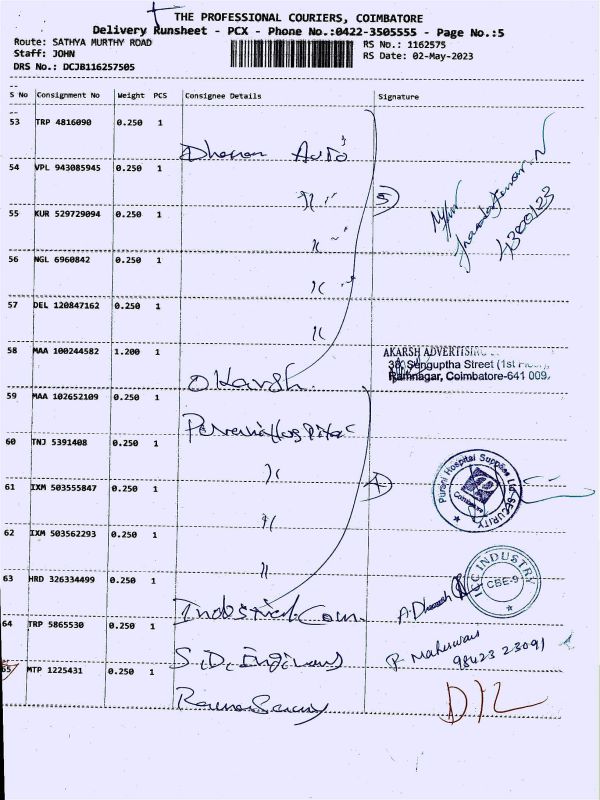 THE PROFESSIONAL COURIERS, COIMBATORE
Delivery Runsheet - PCX - Phone No.:0422-3505555 - Page No.:5
Route: SATHYA MURTHY ROAD
RS No.: 1162575
Staff: JOHN
RS Date: 02-May-2023
DRS No.: DCJB116257505
S No Consignment No Weight PCS Consignee Details Signature
53 TRP 4816090 0.250 1
Auto
54 VPL 943085945 0.250 1
5
55 KUR 529729094 0.250 1
56 NGL 6960842 0.250 1
57 DEL 120847162 0.250 1
58 MAA 100244582 1.200 1
AKARSH ADVERTISING
38, Senguptha Street (1st Floor),
Ramnagar, Coimbatore-641 009.
Akarsh
59 MAA 102652109 0.250 1
60 TNJ 5391408 0.250 1
61 IXM 503555847 0.250 1
4
Purani Hospital Supplies
Coimbatore
SECURITY
62 IXM 503562293 0.250 1
63 HRD 326334499 0.250 1
INDUSTRY
CBE-9
Industrial Coun
64 TRP 5865530 0.250 1
P. Maheswari
98423 23091
S.D. Engineers
65 MTP 1225431 0.250 1
D/L